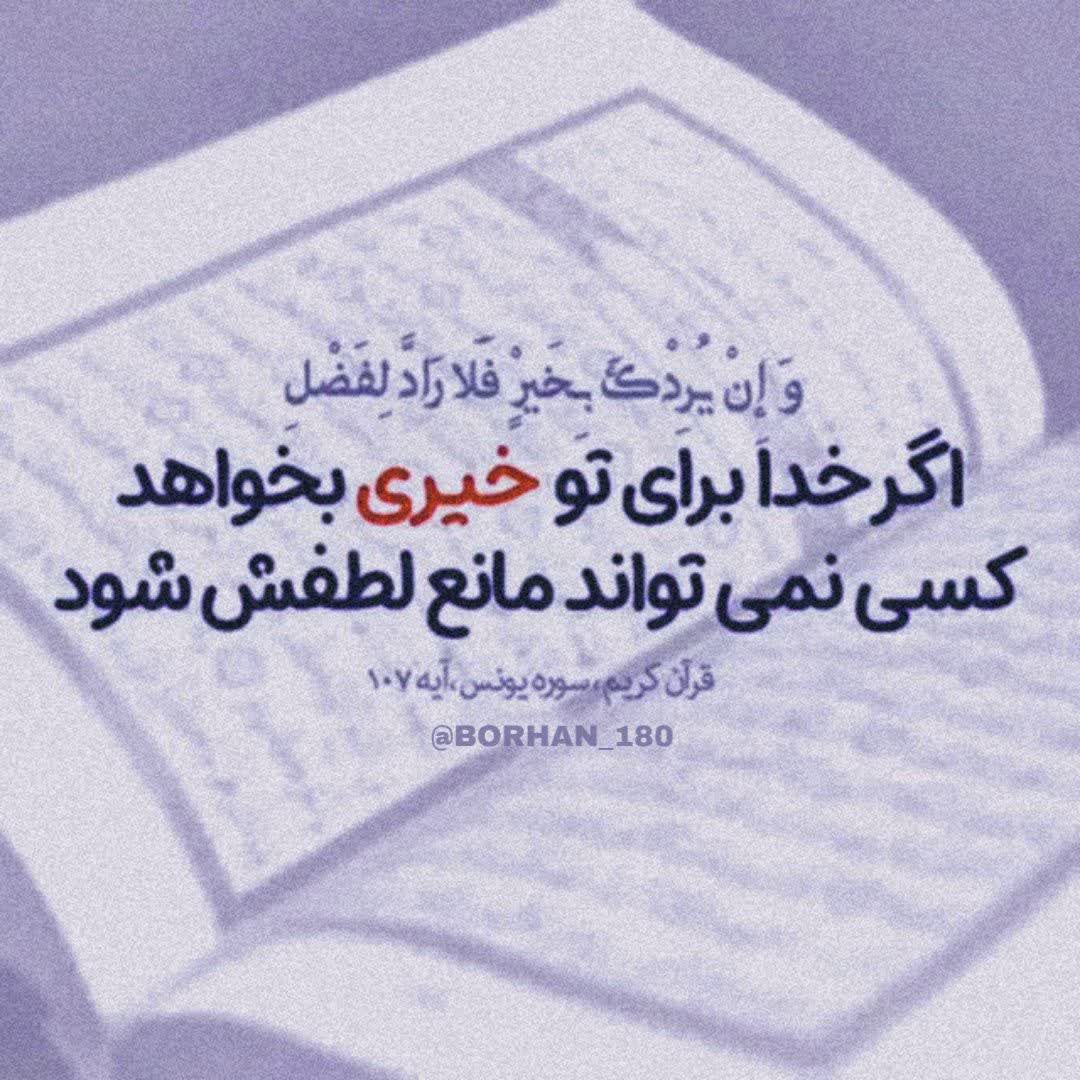 وَ إِنْ يُرِدْكَ بِخَيرٍ فَلا رَادَّ لِفَضْلِ
اگر خدا برای تو خیری بخواهد
کسی نمی تواند مانع لطفش شود
قرآن کریم، سوره یونس، آیه ۱۰۷
@BORHAN_180